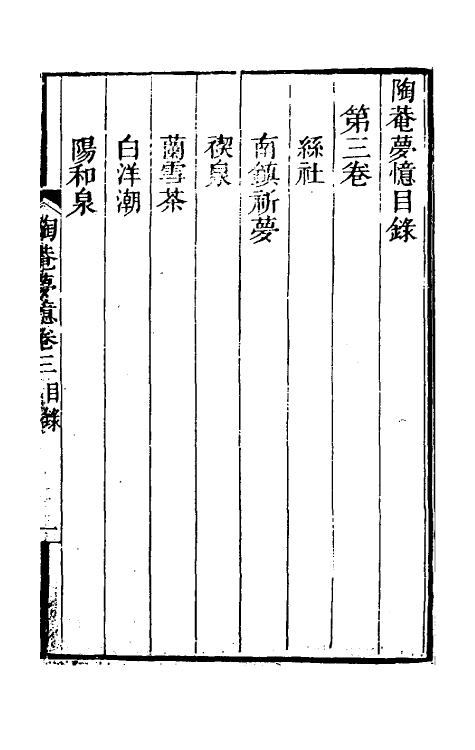 陶菴夢憶目錄
第三卷
絲社
南鎮祈夢
禊泉
蘭雪茶
白洋潮
陽和泉
陶菴夢憶卷三 目錄 一